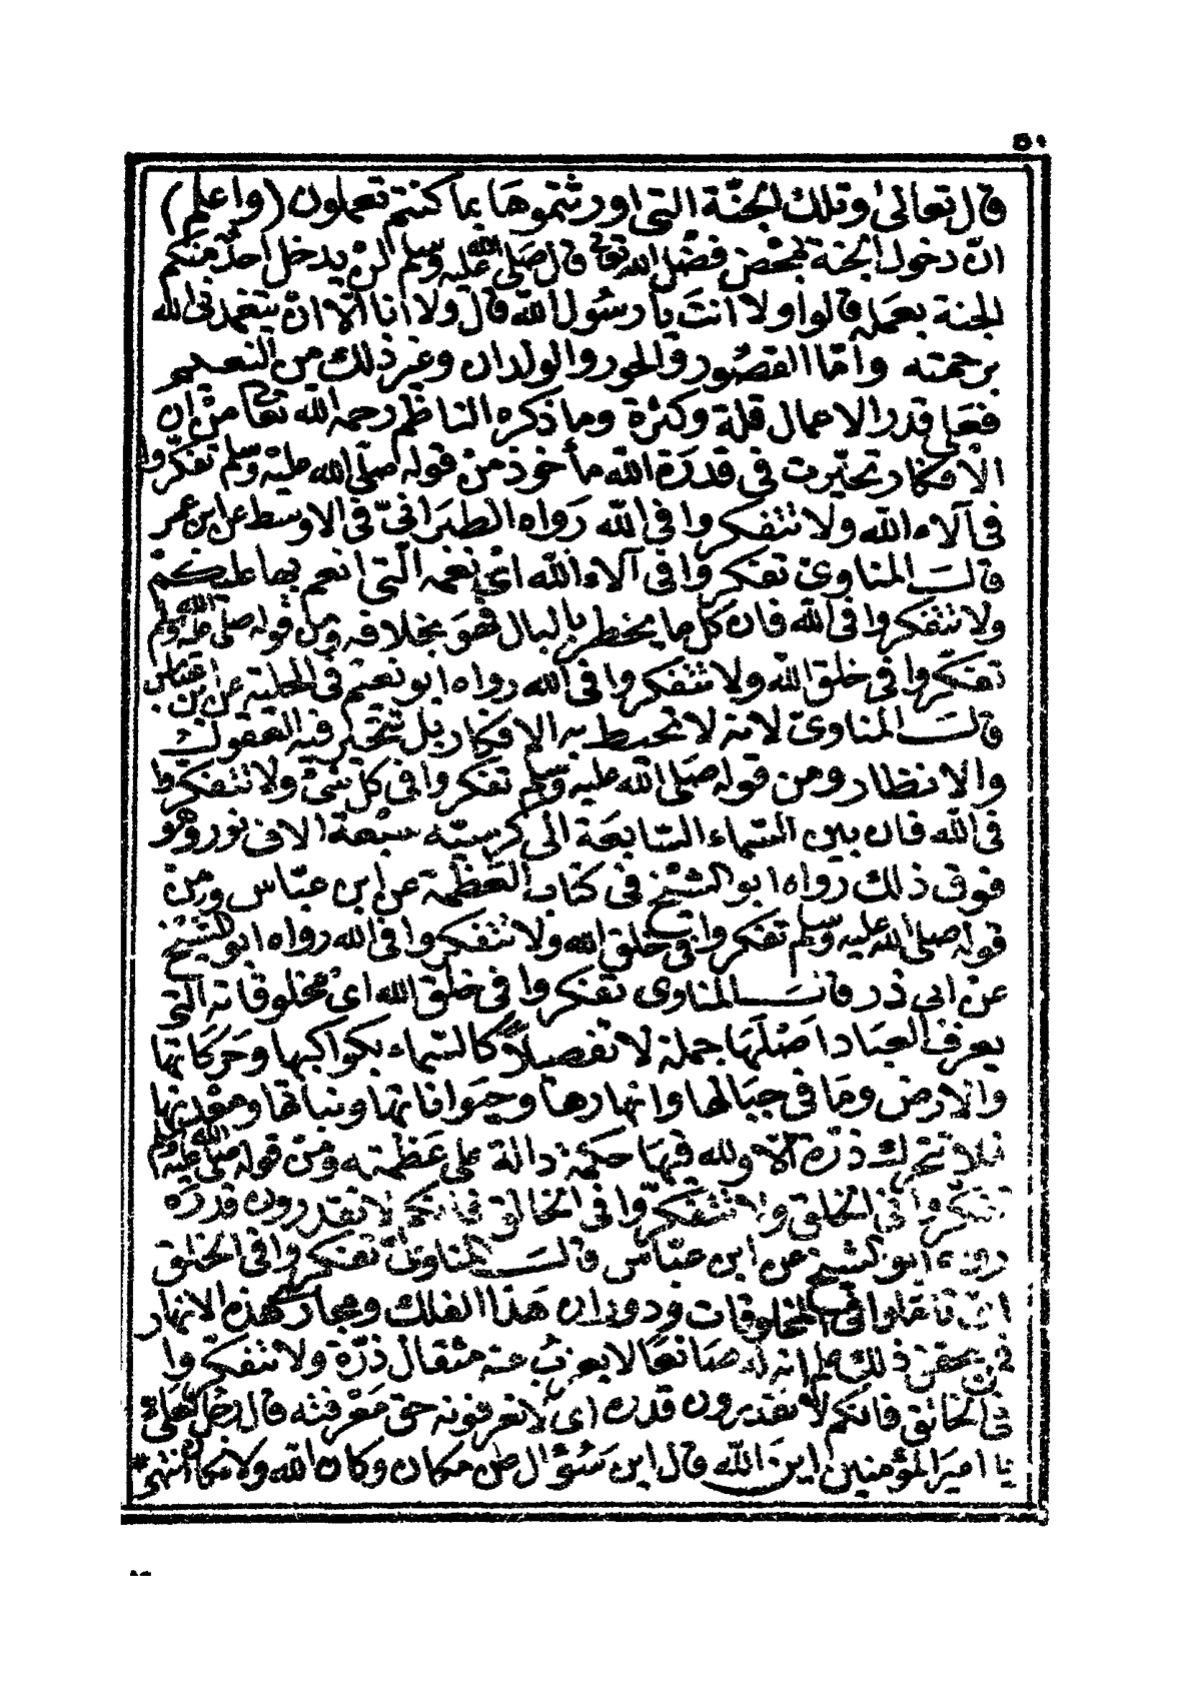 ٥٠
قال تعالى وتلك الجنّة التى اورثتموها بما كنتم تعملون (واعلم)
انّ دخول الجنة بمحض فضل الله تعالى قال صلى الله عليه وسلم لن يدخل احدٌ منكم
الجنة بعمله قالوا ولا انتَ يا رسُول الله قال ولا انا الّا ان يتغمدنى الله
برحمته وامّا القصُور والحور والولدان وغير ذلك من النعيم
فعلى قدر الاعمال قلة وكثرة وما ذكره الناظم رحمه الله تعالى من ان
الافكار تحيّرت فى قدرَة الله مأخوذ من قوله صلى الله عليه وسلم تفكّروا
فى آلاء الله ولا تتفكروا فى الله رَواه الطبَرانىّ فى الاوسط عن ابن عمر
قال المناوىّ تفكروا فى آلاء الله اى نعمه الّتى انعم بها عليكم
ولا تتفكروا فى الله فان كلّ ما يخطر بالبال فهوَ بخلافه ومن قوله صلى الله عليه وسلم
تفكّروا فى خلق الله ولا تتفكروا فى الله رواه ابو نعيم فى الحلية عن ابن عبّاس
قال المناوىّ لانه لا تحيط به الافكار بل تتحيّر فيه العقول
والانظار ومن قوله صَلى الله عليه وسلم تفكروا فى كلّ شىْ ولا تتفكروا
فى الله فان بين السّماء السّابعَة الى كرسيّه سبْعة الاف نور وهو
فوق ذلك رَواه ابو الشيخ فى كتاب العَظمة عن ابن عبّاس ومن
قوله صلى الله عليه وسلم تفكروا فى خلق الله ولا تتفكروا فى الله رواه ابو الشيخ
عن ابى ذر قال المناوى تفكروا فى خلق الله اى مخلوقاته التى
يعرف العبَاد اصْلَهَا جملة لا تفصيلاً كالسّماء بكواكبها وحَركَاتها
والارض وما فى جبَالها وانهارها وحيَوَاناتها ونباتها ومعْدنها
فلا تتحرك ذرّة الّا ولله فيهَا حكمة دالة على عَظمته ومن قوله صلى الله عليه وسلم
تفكّروا فى الخلق ولا تتفكّروا فى الخالق فانكم لا تقدرون قدرَه
رواه ابو الشيخ عن ابن عبّاس قال المناوىّ تفكروا فى الخلق
اى تأملوا فى المخلوقات ودوران هَذا الفلك ومجار هذه الانهار
فمن تحقق ذلك علم ان له صَانعًا لا يعزبُ عنه مثقال ذرّة ولا تتفكّروا
فى الخالق فانكم لا تقدرون قدره اى لا تعرفونه حق مَعْرفته قال رجل لعلىّ
يا اميرَ المؤمنين اينَ الله قال اين سُؤال عن مكان وكان الله ولا مكان انتهى